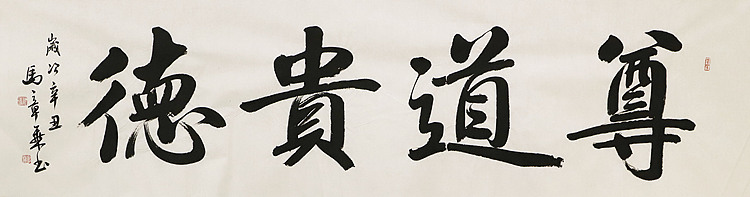 尊道貴德
歲次辛丑
馬章乘書